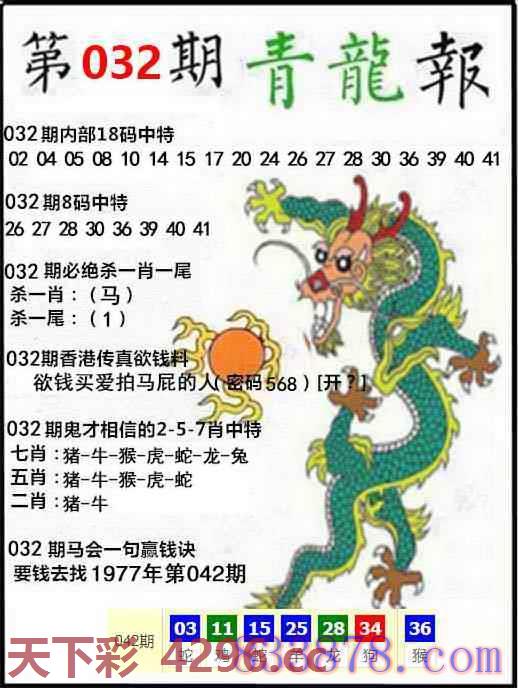 第032期 青龍報
032期内部18码中特
02 04 05 08 10 14 15 17 20 24 26 27 28 30 36 39 40 41
032期8码中特
26 27 28 30 36 39 40 41
032期必绝杀一肖一尾
杀一肖：（马）
杀一尾：（1）
032期香港传真欲钱料
欲钱买爱拍马屁的人(密码568)[开？]
032期鬼才相信的2-5-7肖中特
七肖：猪-牛-猴-虎-蛇-龙-兔
五肖：猪-牛-猴-虎-蛇
二肖：猪-牛
032期马会一句赢钱诀
要钱去找1977年第042期
03 11 15 25 28 34 36
042期 蛇 鸡 蛇 羊 龙 狗 猴
天下彩 4296.cc